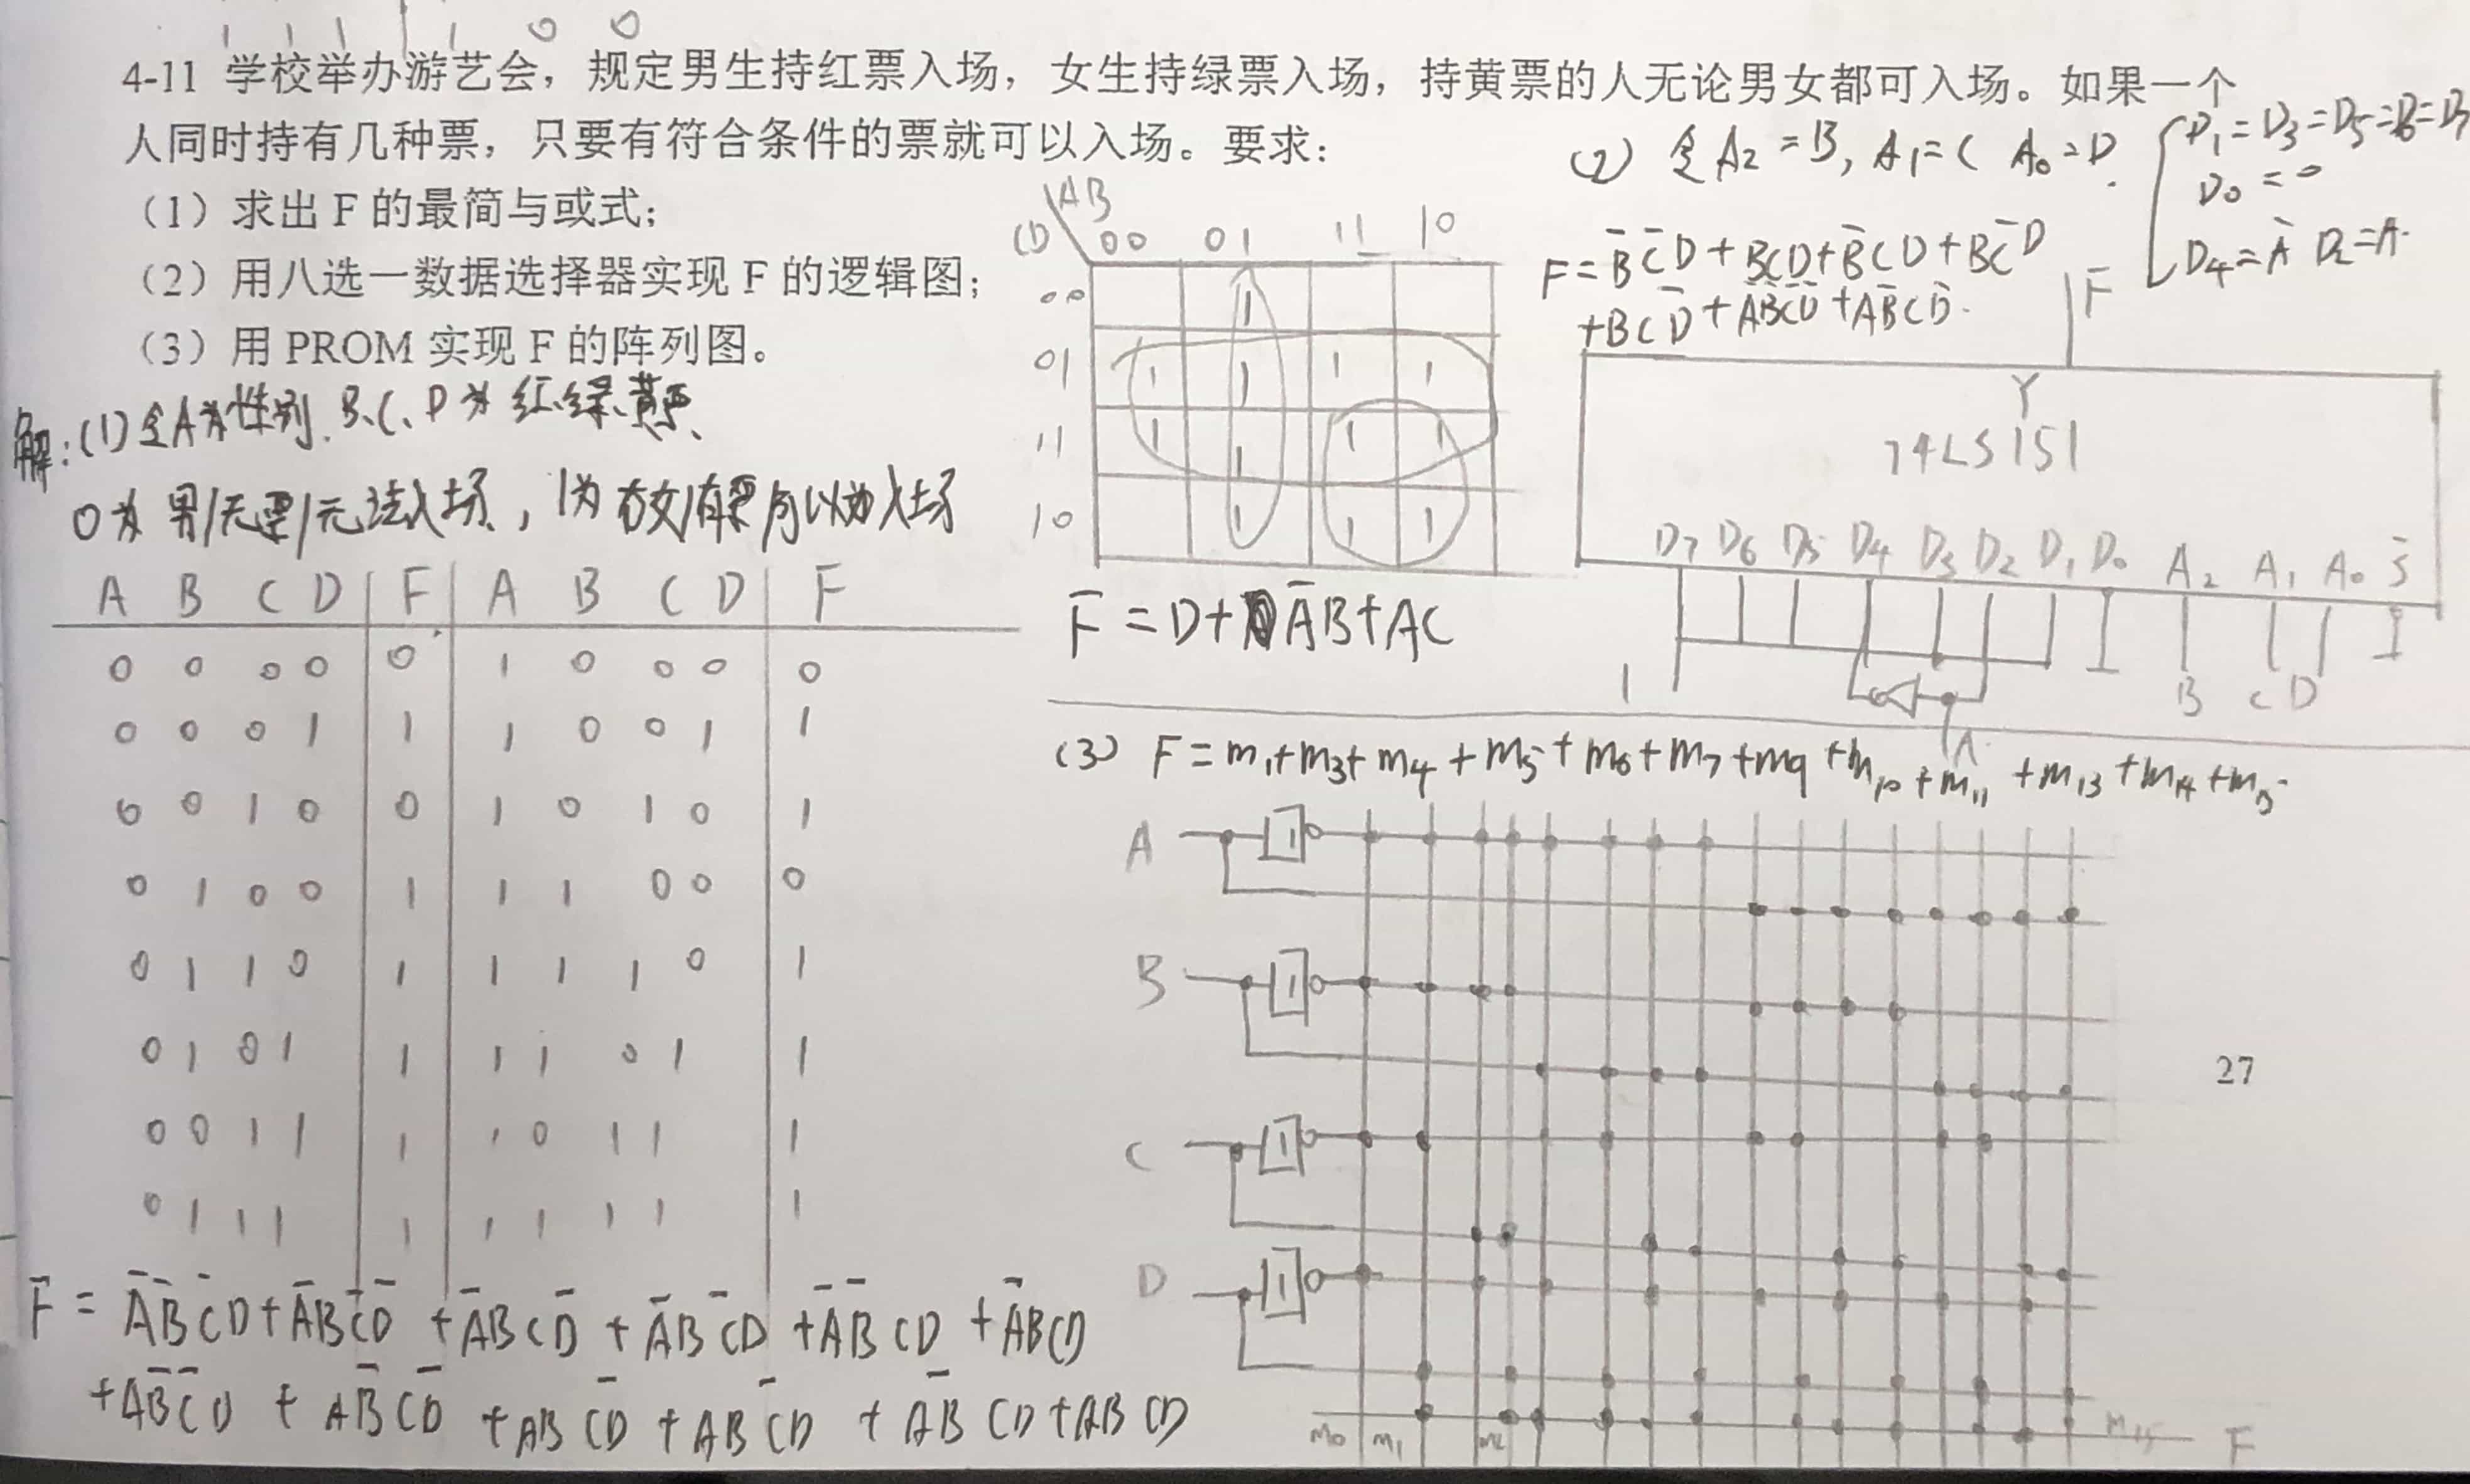 1 1 1 1 0 0
4-11 学校举办游艺会，规定男生持红票入场，女生持绿票入场，持黄票的人无论男女都可入场。如果一个
人同时持有几种票，只要有符合条件的票就可以入场。要求：
（1）求出 F 的最简与或式；
（2）用八选一数据选择器实现 F 的逻辑图；
（3）用 PROM 实现 F 的阵列图。
解：(1) 令A为性别、B、C、D为红、绿、黄票、
0为男/无票/无法入场，1为女/有票/可以入场
A B C D F A B C D F
0 0 0 0 0 1 0 0 0 0
0 0 0 1 1 1 0 0 1 1
0 0 1 0 0 1 0 1 0 1
0 1 0 0 1 1 1 0 0 0
0 1 1 0 1 1 1 1 0 1
0 1 0 1 1 1 1 0 1 1
0 0 1 1 1 1 0 1 1 1
0 1 1 1 1 1 1 1 1 1
F = A̅B̅C̅D + A̅BC̅D̅ + A̅BCD̅ + A̅BC̅D + A̅B̅CD + A̅BCD
+ AB̅C̅D + AB̅CD̅ + ABCD̅ + ABC̅D + AB̅CD + ABCD
AB
CD 00 01 11 10
00 1
01 1 1 1 1
11 1 1 1 1
10 1 1 1
F = D + A̅B + AC
(2) 令 A2 = B, A1 = C A0 = D.
D0 = 0
D4 = A̅ D2 = A.
F = B̅C̅D + BCD + B̅CD + BC̅D
+ BCD̅ + A̅BC̅D̅ + AB̅CD̅.
F
Y
74LS151
D7 D6 D5 D4 D3 D2 D1 D0 A2 A1 A0 S̅
1 B C D
A
(3) F = m1 + m3 + m4 + m5 + m6 + m7 + m9 + m10 + m11 + m13 + m14 + m15
A 1
B 1
C 1
D 1
m0 m1 m2 m15 F
27